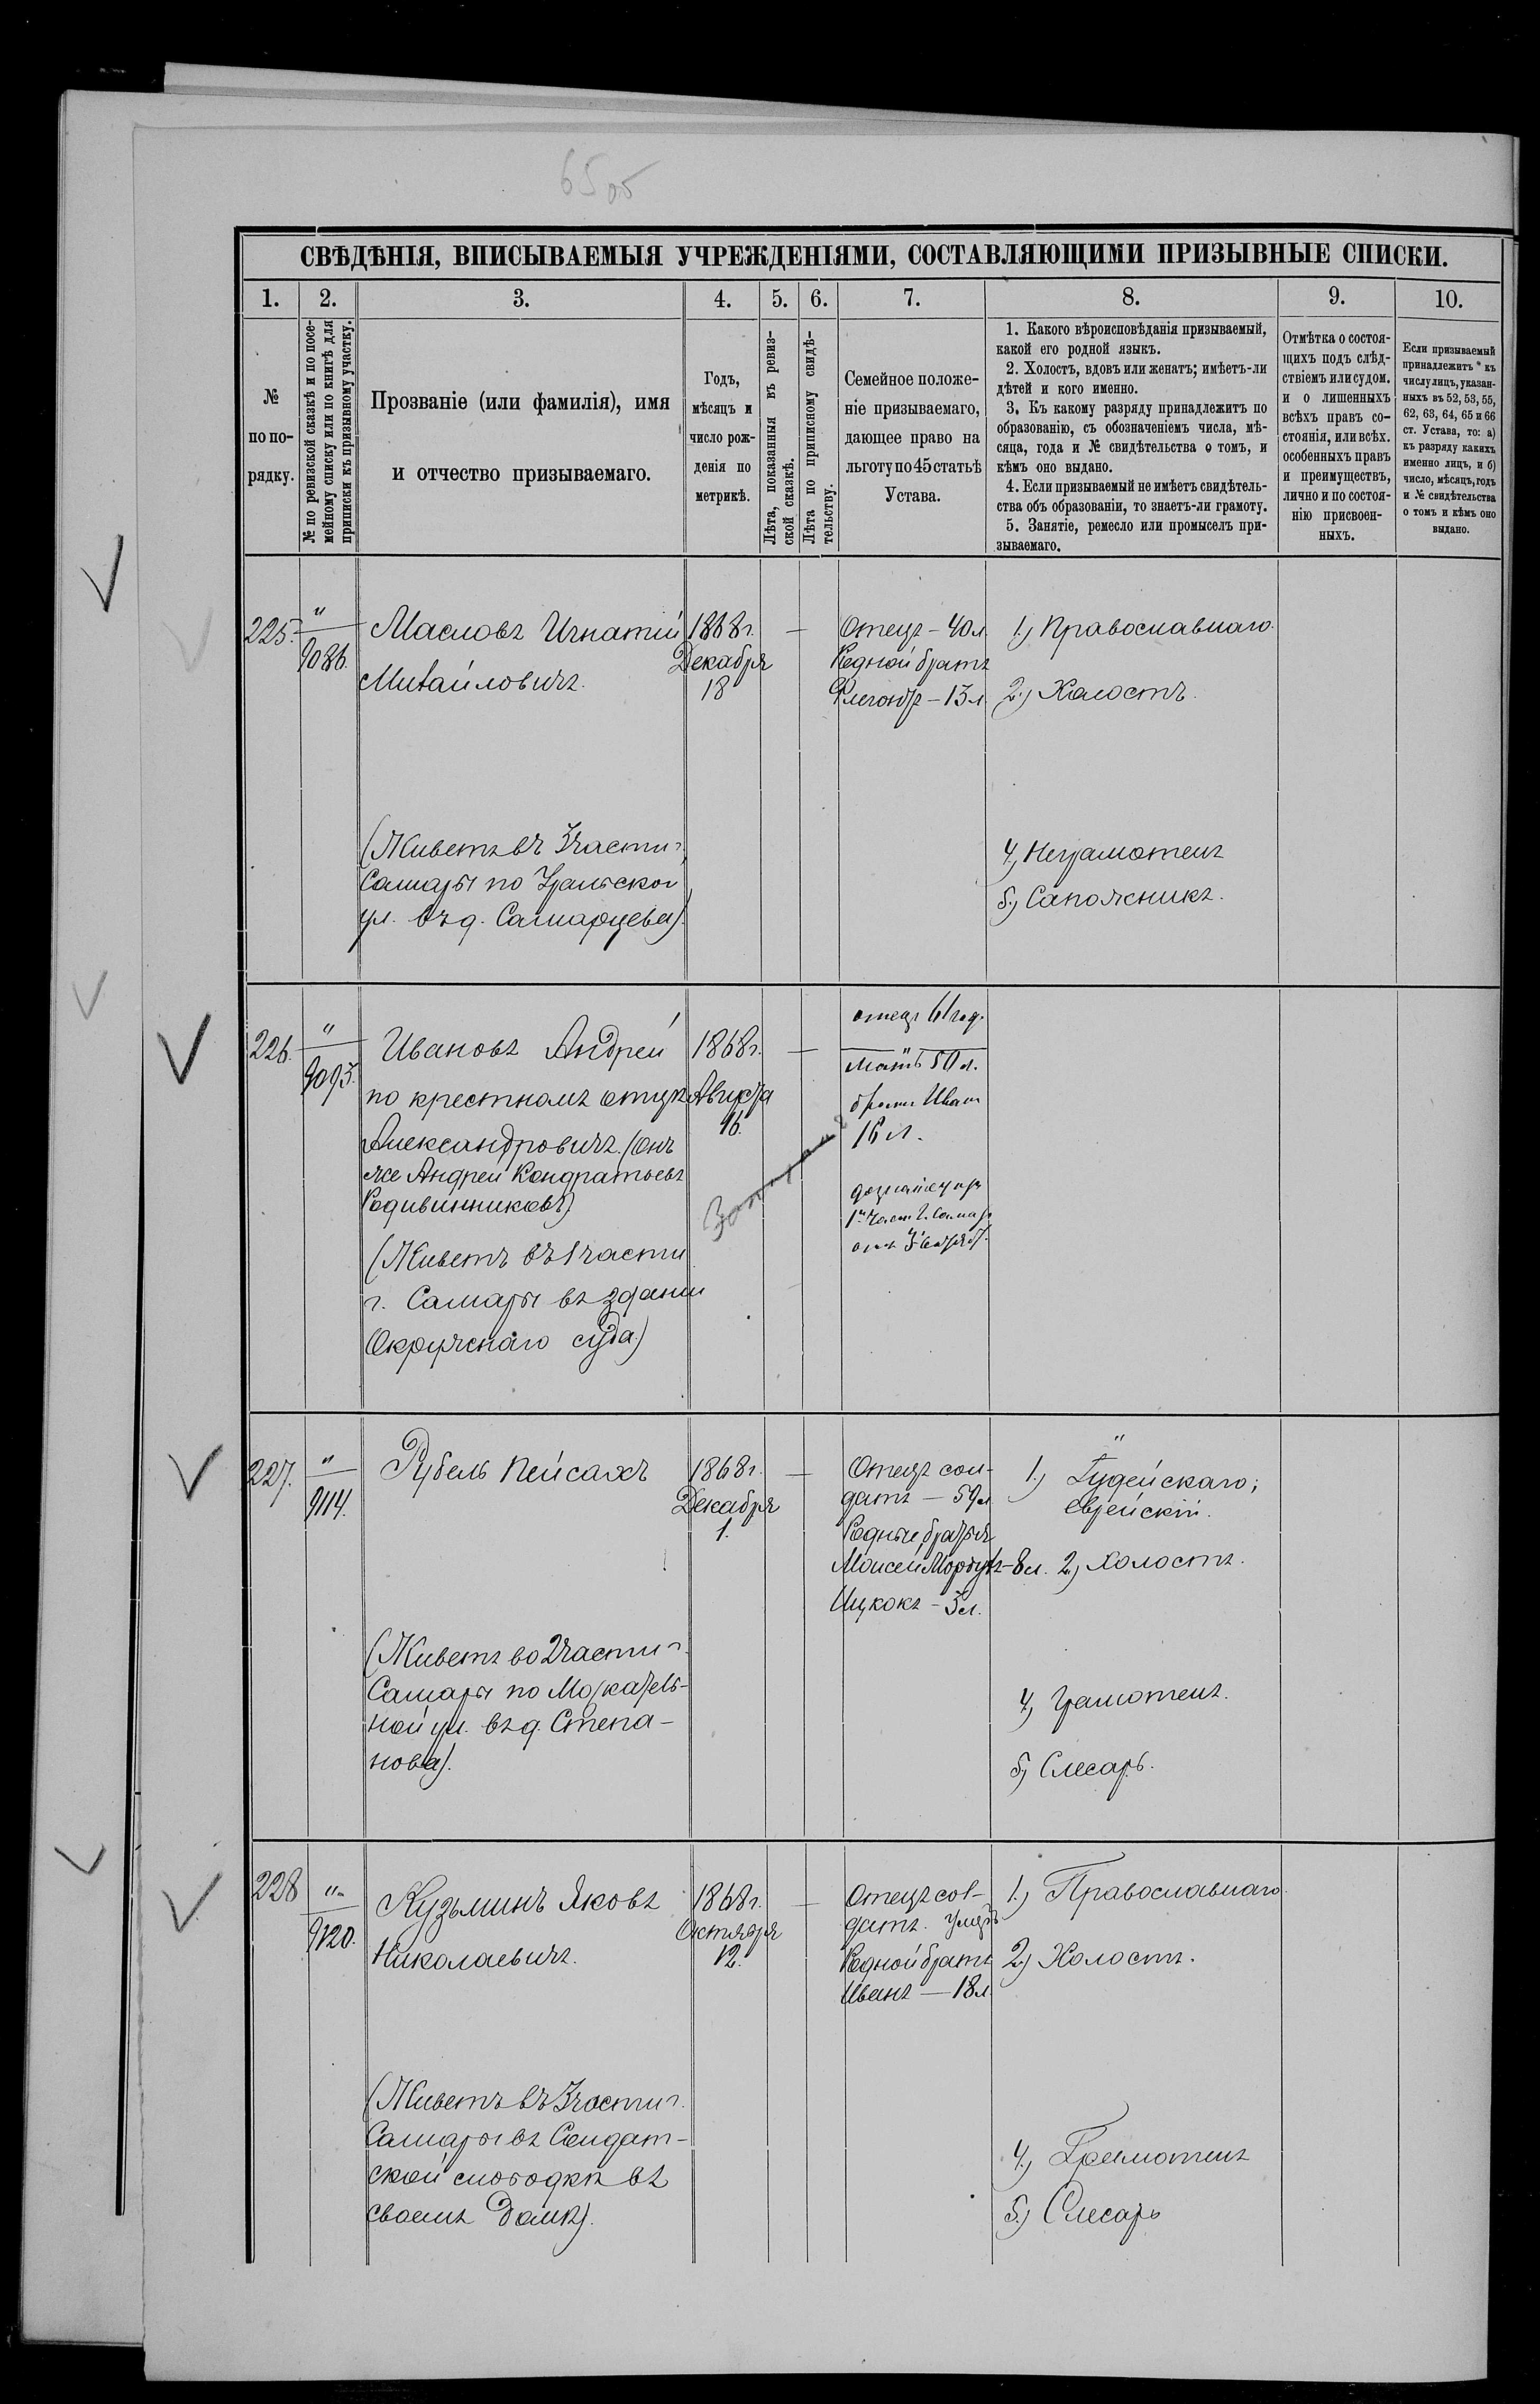 65об
СВѢДѢНІЯ, ВПИСЫВАЕМЫЯ УЧРЕЖДЕНІЯМИ, СОСТАВЛЯЮЩИМИ ПРИЗЫВНЫЕ СПИСКИ.
1.
2.
3.
4.
5.
6.
7.
8.
9.
10.
№
по по-
рядку.
№ по ревизской сказкѣ и по посе-
мейному списку или по книгѣ для
приписки къ призывному участку.
Прозваніе (или фамилія), имя
и отчество призываемаго.
Годъ,
мѣсяцъ и
число рож-
денія по
метрикѣ.
Лѣта, показанныя въ ревиз-
ской сказкѣ.
Лѣта по приписному свидѣ-
тельству.
Семейное положе-
ніе призываемаго,
дающее право на
льготу по 45 статьѣ
Устава.
1. Какого вѣроисповѣданія призываемый,
какой его родной языкъ.
2. Холостъ, вдовъ или женатъ; имѣетъ-ли
дѣтей и кого именно.
3. Къ какому разряду принадлежитъ по
образованію, съ обозначеніемъ числа, мѣ-
сяца, года и № свидѣтельства о томъ, и
кѣмъ оно выдано.
4. Если призываемый не имѣетъ свидѣтель-
ства объ образованіи, то знаетъ-ли грамоту.
5. Занятіе, ремесло или промыселъ при-
зываемаго.
Отмѣтка о состоя-
щихъ подъ слѣд-
ствіемъ или судом.
и о лишенныхъ
всѣхъ правъ со-
стоянія, или всѣх.
особенныхъ правъ
и преимуществъ,
лично и по состоя-
нію присвоен-
ныхъ.
Если призываемый
принадлежитъ къ
числу лицъ, указан-
ныхъ въ 52, 53, 55,
62, 63, 64, 65 и 66
ст. Устава, то: а)
къ разряду какихъ
именно лицъ, и б)
число, мѣсяцъ, годъ
и № свидѣтельства
о томъ и кѣмъ оно
выдано.
225.
"
9086.
Масловъ Игнатій
Михайловичъ.
1868 г.
Декабря
18
—
Отецъ – 40 л
Родной братъ
– 13 л
1.) Православнаго.
2.) Холостъ.
(Живетъ въ 3 части г.
Самары по Уральской
ул. въ д. Самарцева).
4.) Неграмотенъ
5.) Сапожникъ.
226.
"
9093.
Ивановъ Андрей
по крестномъ отцѣ
Александровичъ. (онъ
же Андрей Кондратьевъ
Родивинниковъ)
1868 г.
Августа
16.
—
отецъ 61 год.
Мать 50 л.
братъ Иванъ
16 л.
(Живетъ въ 1 части
г. Самары въ зданіи
Окружнаго суда.)
227.
"
9114.
Рубель Пейсахъ
1868 г.
Декабря
1.
—
Отецъ сол-
датъ – 59 л
Родные братья
Моисей Мордухъ – 8 л.
Ицкокъ – 3 л.
1.) Іудейскаго;
еврейскій.
2.) Холостъ.
(Живетъ во 2 части г.
Самары по Москатель-
ной ул. въ д. Степа-
нова).
4.) Грамотенъ.
5.) Слесарь.
228
"
9120.
Кузьминъ Яковъ
Николаевичъ.
1868 г.
Октября
12.
—
Отецъ сол-
датъ. умеръ
Родной братъ
Иванъ — 18 л
1.) Православнаго.
2.) Холостъ.
(Живетъ въ 3 части г.
Самары въ Солдат-
ской слободкѣ въ
своемъ домѣ).
4.) Грамотенъ
5.) Слесарь